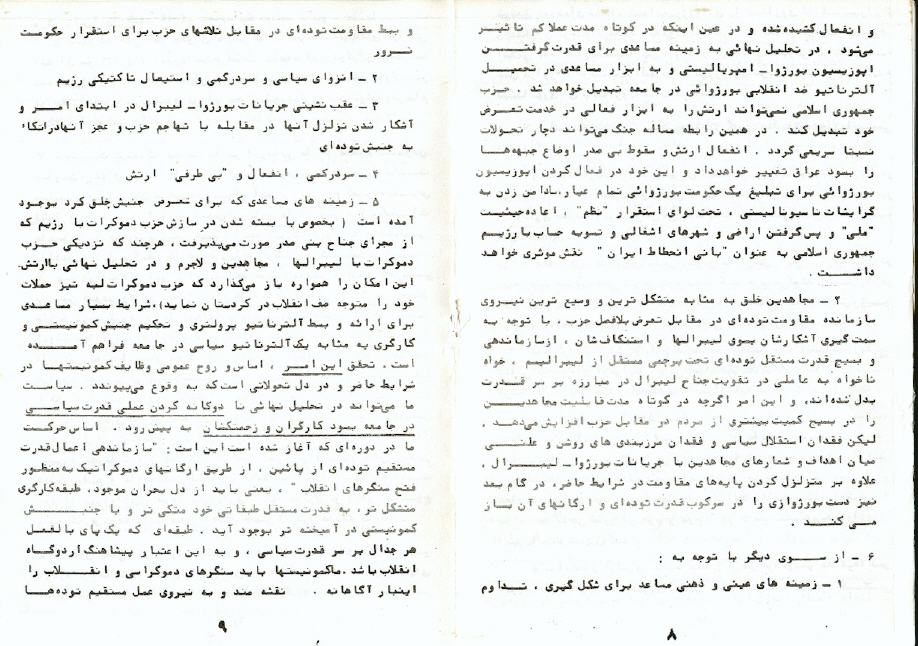 و انفعال کشیده شده و در عین اینکه در کوتاه مدت عملا کم تاثیر
میشود ، در تحلیل نهائی به زمینه مساعدی برای قدرت گرفتن
اپوزیسیون بورژوا ـ امپریالیستی و به ابزار مساعدی در تحمیل
آلترناتیو ضد انقلابی بورژوائی در جامعه تبدیل خواهد شد . حزب
جمهوری اسلامی نمیتواند ارتش را به ابزار فعالی در خدمت تعرض
خود تبدیل کند . در همین رابطه مساله جنگ میتواند دچار تحولات
نسبتا سریعی گردد . انفعال ارتش و سقوط بنی صدر اوضاع جبهه ها
را بسود عراق تغییر خواهد داد و این خود در فعال کردن اپوزیسیون
بورژوائی برای تبلیغ یک حکومت بورژوائی تمام عیار ، با دامن زدن به
گرایشات ناسیونالیستی ، تحت لوای استقرار "نظم" ، اعاده حیثیت
"ملی" و پس گرفتن اراضی و شهرهای اشغالی و تسویه حساب با رژیم
جمهوری اسلامی به عنوان "بانی انحطاط ایران" نقش موثری خواهد
داشت .
۲ ـ مجاهدین خلق به مثابه متشکل ترین و وسیع ترین نیروی
سازمانده مقاومت توده ای در مقابل تعرض بلافصل حزب ، با توجه به
سمت گیری آشکارشان بسوی لیبرالها و استنکافشان ، از سازماندهی
و بسیج قدرت مستقل توده ای تحت پرچمی مستقل از لیبرالیسم ، خواه
ناخواه به عاملی در تقویت جناح لیبرال در مبارزه بر سر قدرت
بدل شده اند، و این امر اگرچه در کوتاه مدت قابلیت مجاهدین
را در بسیج کمیت بیشتری از مردم در مقابل حزب افزایش میدهد ،
لیکن فقدان استقلال سیاسی و فقدان مرزبندی های روشن و علنی
میان اهداف و شعارهای مجاهدین با جریانات بورژوا ـ لیبرال ،
علاوه بر متزلزل کردن پایه های مقاومت در شرایط حاضر، در گام بعد
نیز دست بورژوازی را در سرکوب قدرت توده ای و ارگانهای آن باز
می کند .
۶ ـ از سوی دیگر با توجه به :
۱ ـ زمینه های عینی و ذهنی مساعد برای شکل گیری ، تداوم
۸
و بسط مقاومت توده ای در مقابل تلاشهای حزب برای استقرار حکومت
ترور
۲ ـ انزوای سیاسی و سردرگمی و استیصال تاکتیکی رژیم
۳ ـ عقب نشینی جریانات بورژوا ـ لیبرال در ابتدای امر و
آشکار شدن تزلزل آنها در مقابله با تهاجم حزب و عجز آنها در اتکاء
به جنبش توده ای
۴ ـ سردرگمی ، انفعال و "بی طرفی" ارتش
۵ ـ زمینه های مساعدی که برای تعرض جنبش خلق کرد بوجود
آمده است ( بخصوص با بسته شدن در سازش حزب دموکرات با رژیم که
از مجرای جناح بنی صدر صورت میپذیرفت ، هرچند که نزدیکی حزب
دموکرات با لیبرالها ، مجاهدین و لاجرم و در تحلیل نهائی با ارتش،
این امکان را همواره باز میگذارد که حزب دموکرات لبه تیز حملات
خود را متوجه صف انقلاب در کردستان نماید)، شرایط بسیار مساعدی
برای ارائه و بسط آلترناتیو پرولتری و تحکیم جنبش کمونیستی و
کارگری به مثابه یک آلترناتیو سیاسی در جامعه فراهم آمده
است . تحقق این امر ، اساس و روح عمومی وظایف کمونیستها در
شرایط حاضر و در دل تحولاتی است که به وقوع میپیوندد . سیاست
ما میتواند در تحلیل نهائی تا دوگانه کردن عملی قدرت سیاسی
در جامعه بسود کارگران و زحمتکشان به پیش رود . اساس حرکت
ما در دوره ای که آغاز شده است این است : "سازماندهی اعمال قدرت
مستقیم توده ای از پائین ، از طریق ارگانهای دموکراتیک به منظور
فتح سنگرهای انقلاب" ، یعنی باید از دل بحران موجود، طبقه کارگری
متشکل تر ، به قدرت مستقل طبقاتی خود متکی تر و با جنبش
کمونیستی در آمیخته تر بوجود آید . طبقه ای که یک پای بالفعل
هر جدال بر سر قدرت سیاسی ، و به این اعتبار پیشاهنگ اردوگاه
انقلاب باشد . ما کمونیستها باید سنگرهای دموکراسی و انقلاب را
اینبار آگاهانه . نقشه مند و به نیروی عمل مستقیم توده ها
۹